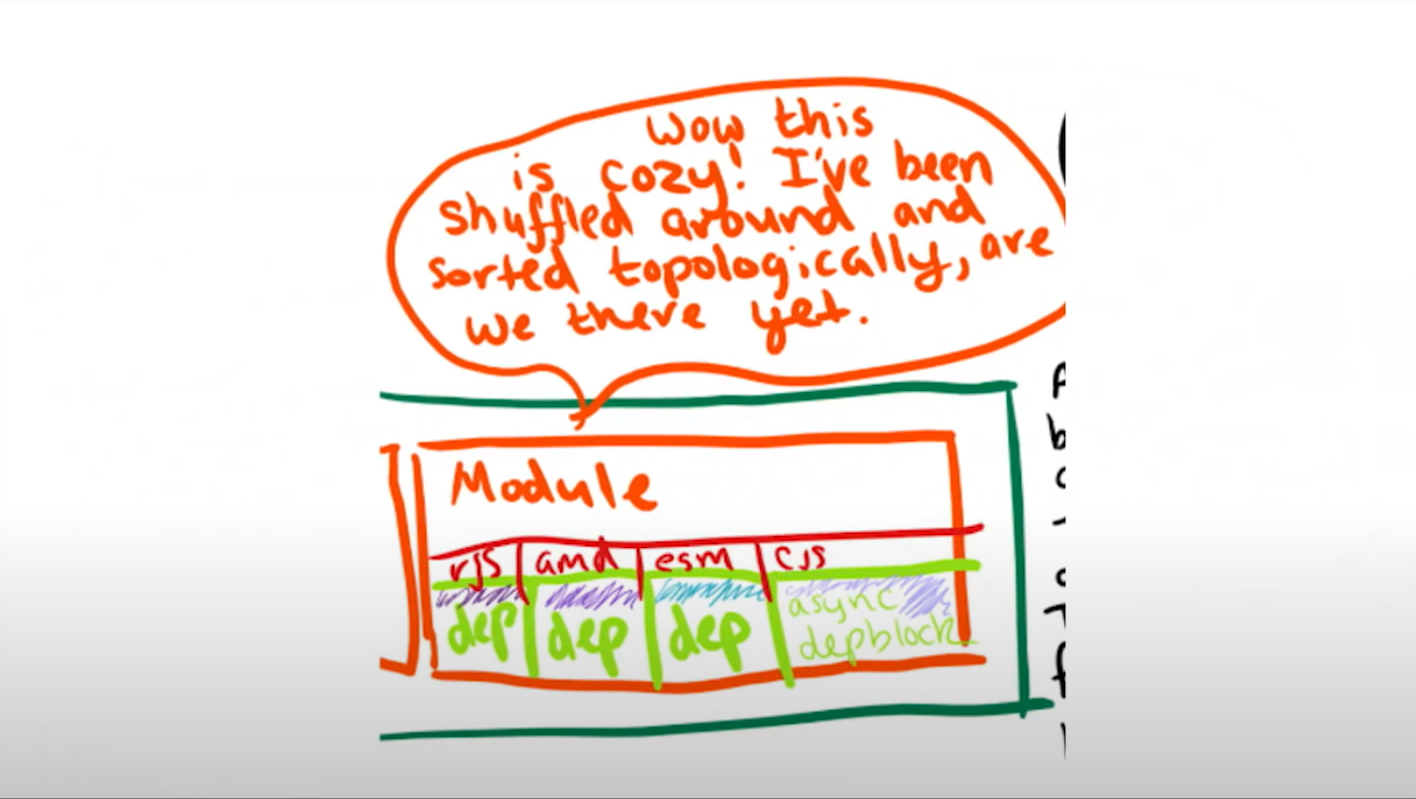 Wow this
is cozy! I've been
shuffled around and
sorted topologically, are
we there yet.
Module
rjs amd esm cjs
dep dep dep async
depblock